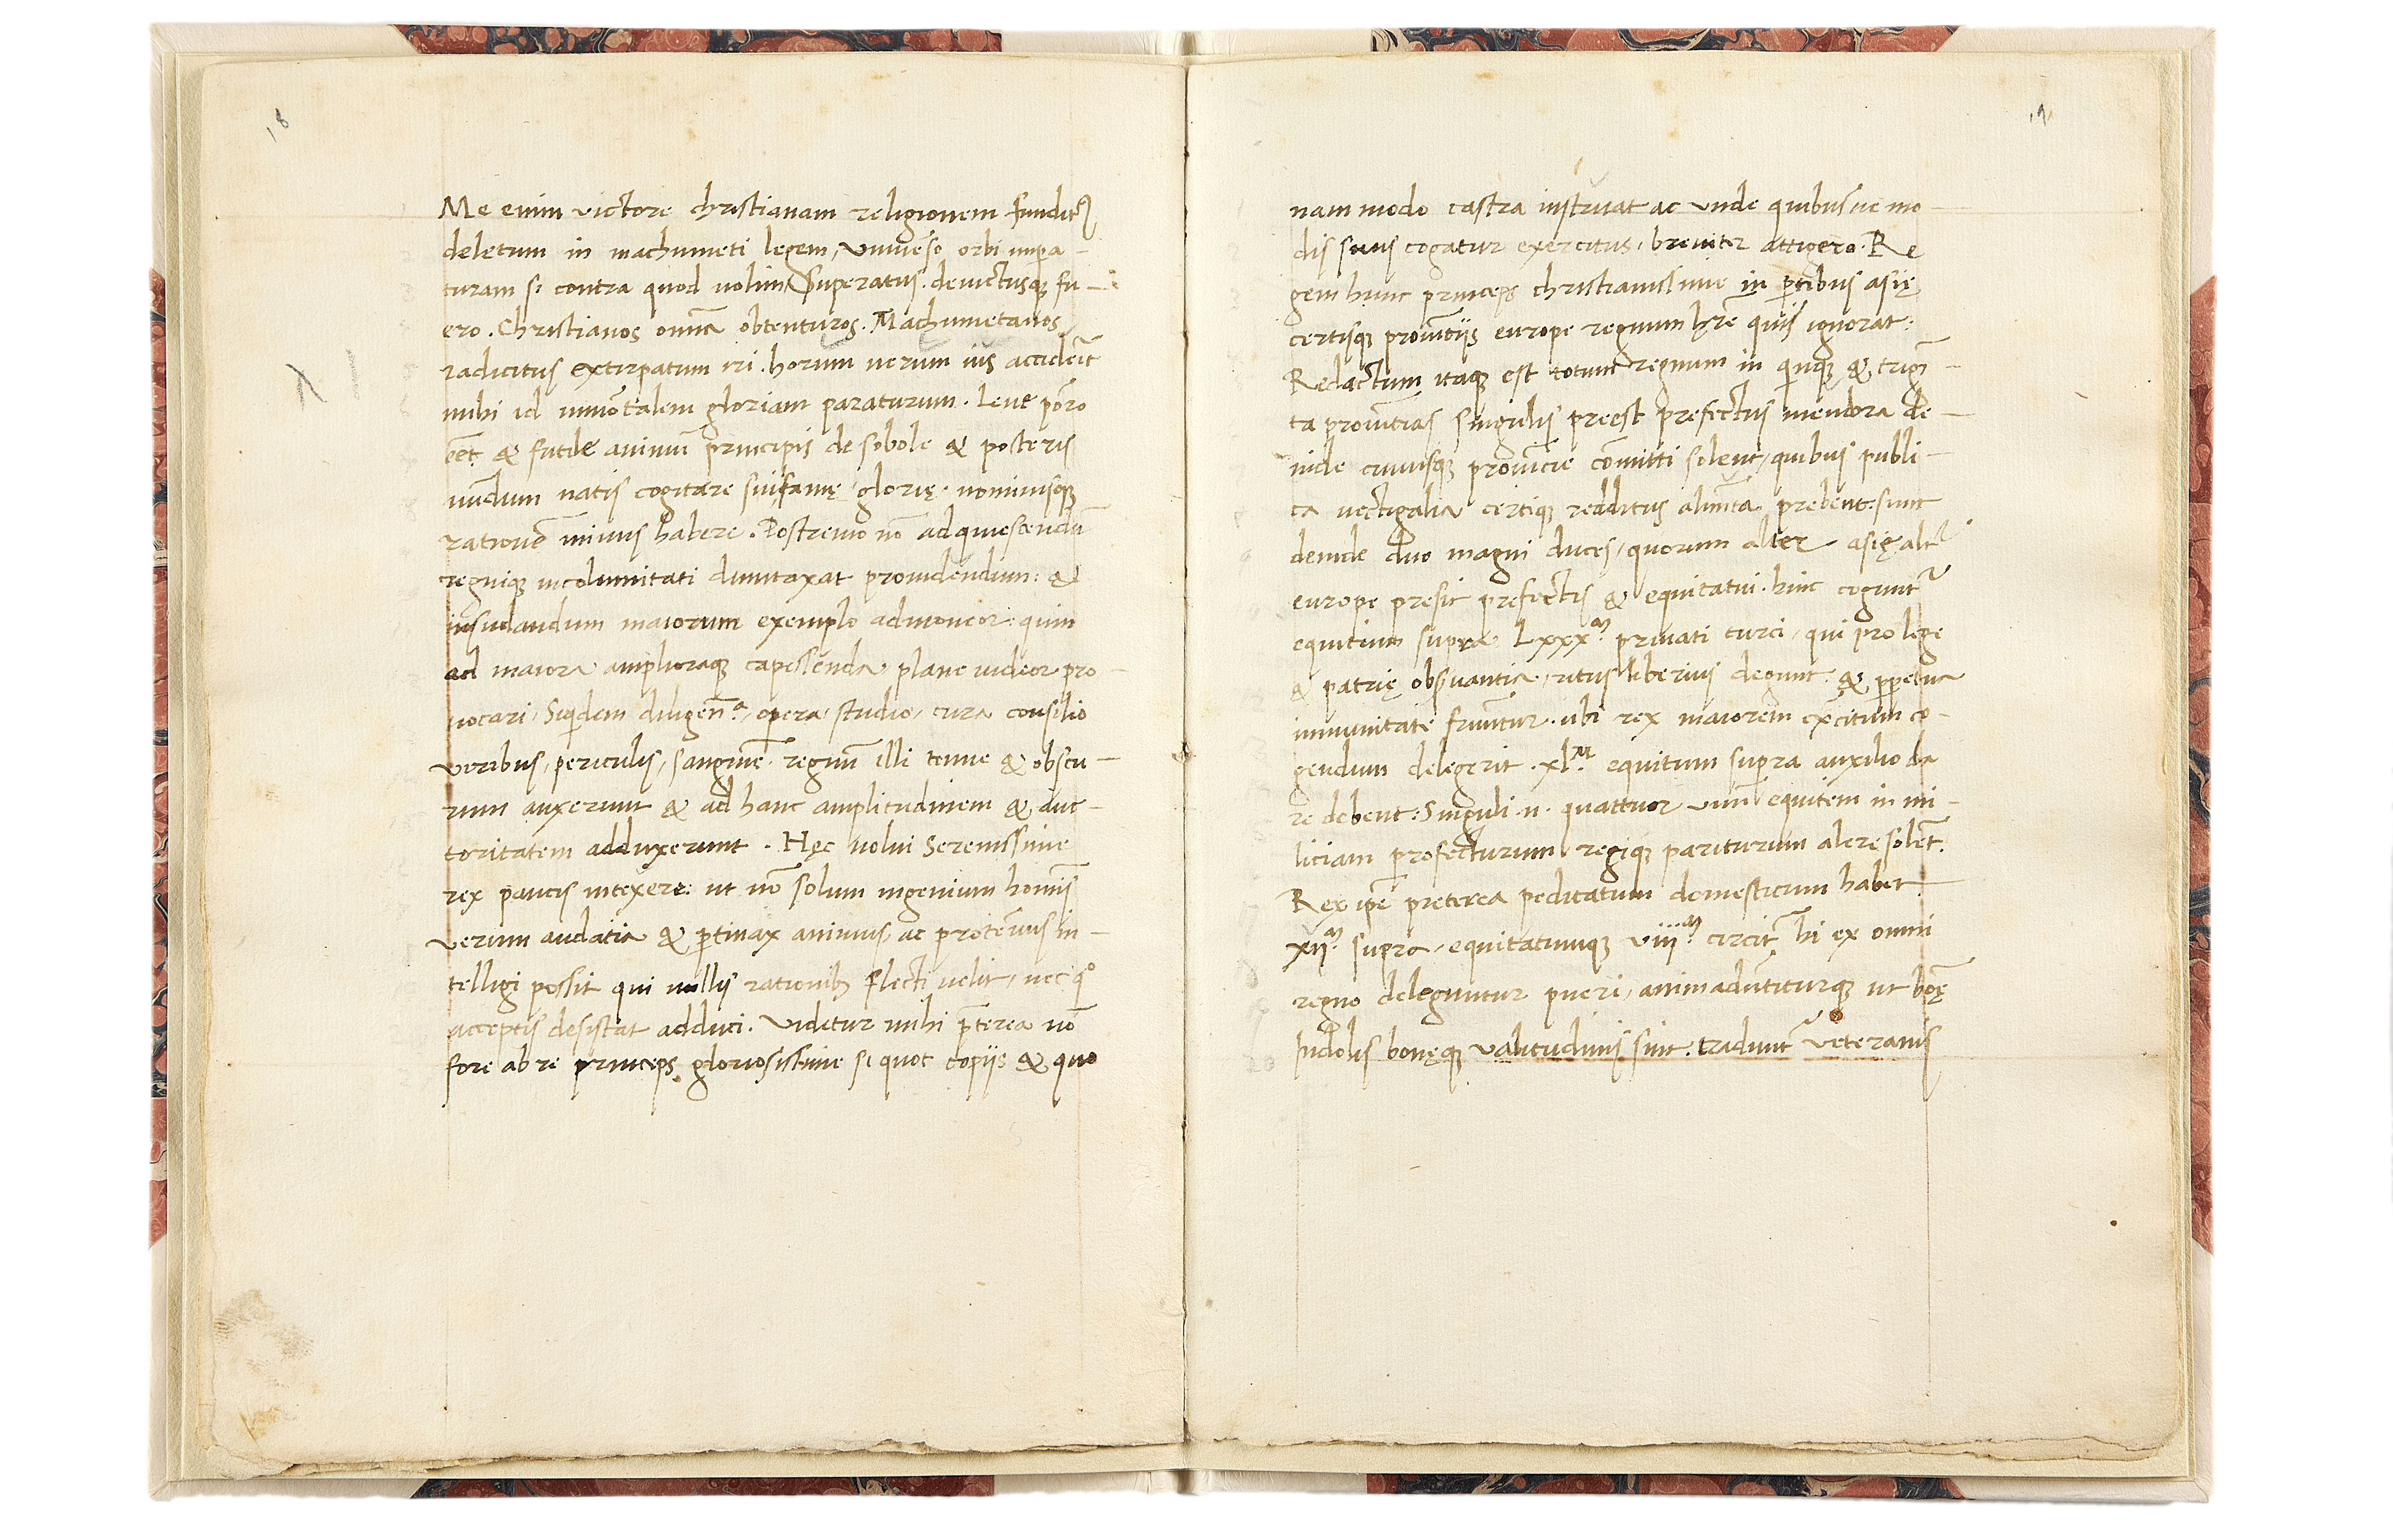 18
Me enim victore christianam religionem fundit9
deletum in machumeti legem, Univẽso orbi impa-
turam si contra quod nolim, Superatus. devictusq; fu-
ero. Christianos om̃ia obtenturos. Machumetanos
radicitus extirpatum iri. horum uerum ius acciderit
mihi id immõtalem gloriam paraturum. Leue porro
eẽt & futile animũ principis de sobole & posteris
nũdum natis cogitare sui famę, glorię. nominisq;
rationẽ minus habere. Postremo nõ adquiescendũ
regniq; incolumitati dumtaxat prouidendum: &
insudandum maiorum exemplo admoneor: quin
ad maiora amplioraq; capessenda plane uideor pro-
uocari, Siqdem diligenᵃ, opera, studio, cura consilio
viribus, periculis, sanguine. regnũ illi tenue & obscu-
rum auxerunt & ad hanc amplitudinem & auc-
toritatem adduxerunt. Hęc uolui Serenissime
rex paucis intexere: ut nõ solum ingenium homĩs
verum audatia & ptinax animus, ac proteruus in-
telligi possit qui nullis rationib; flecti uelit, nec q°
acceptis desistat adduci. Videtur mihi p̃terea nõ
fore ab re princeps gloriosissime si quot copiis & quo
19
nam modo castra instruat ac unde quibusue mo-
dis suus cogatur exercitus, breuiter attigero. Re
gem hunc princeps christianissime in ptibus asię
certisq; prouĩtiis europe regnum hr̃e quis ignorat:
Redactum itaq; est totum regnum in quinq; & trigĩ-
ta prouĩtias singulis preest prefectus menbra de-
inde cuiusq; prouĩcie cõmitti solent, quibus publi-
ca uectigalia certiq; redditus alimẽta prebent: sunt
deinde duo magni duces, quorum alter asię, alt̃
europe presit prefectis & equitatui. hinc cogunt̃
equitum supra Lxxxᵐ. priuati turci, qui pro lege
& patrię obs̃uantia, ritus liberius degunt. & ppetua
immunitate fruuntur. ubi rex maiorem ex̃citum co-
gendum delegerit. xlᴹ. equitum supra auxilio da
re debent: Singuli. n. quattuor unũ equitem in mi-
liciam profecturum, regiq; pariturum alere solẽt.
Rex ipẽ preterea peditatum domesticum habet
xiiᵐ. supra, equitatumq; viiiᵐ. circit̃ hi ex omni
regno deleguntur pueri, animad̃utiturq; ut bõę
Indolis bonęq; valitudinis sint. tradunt̃ veteranis